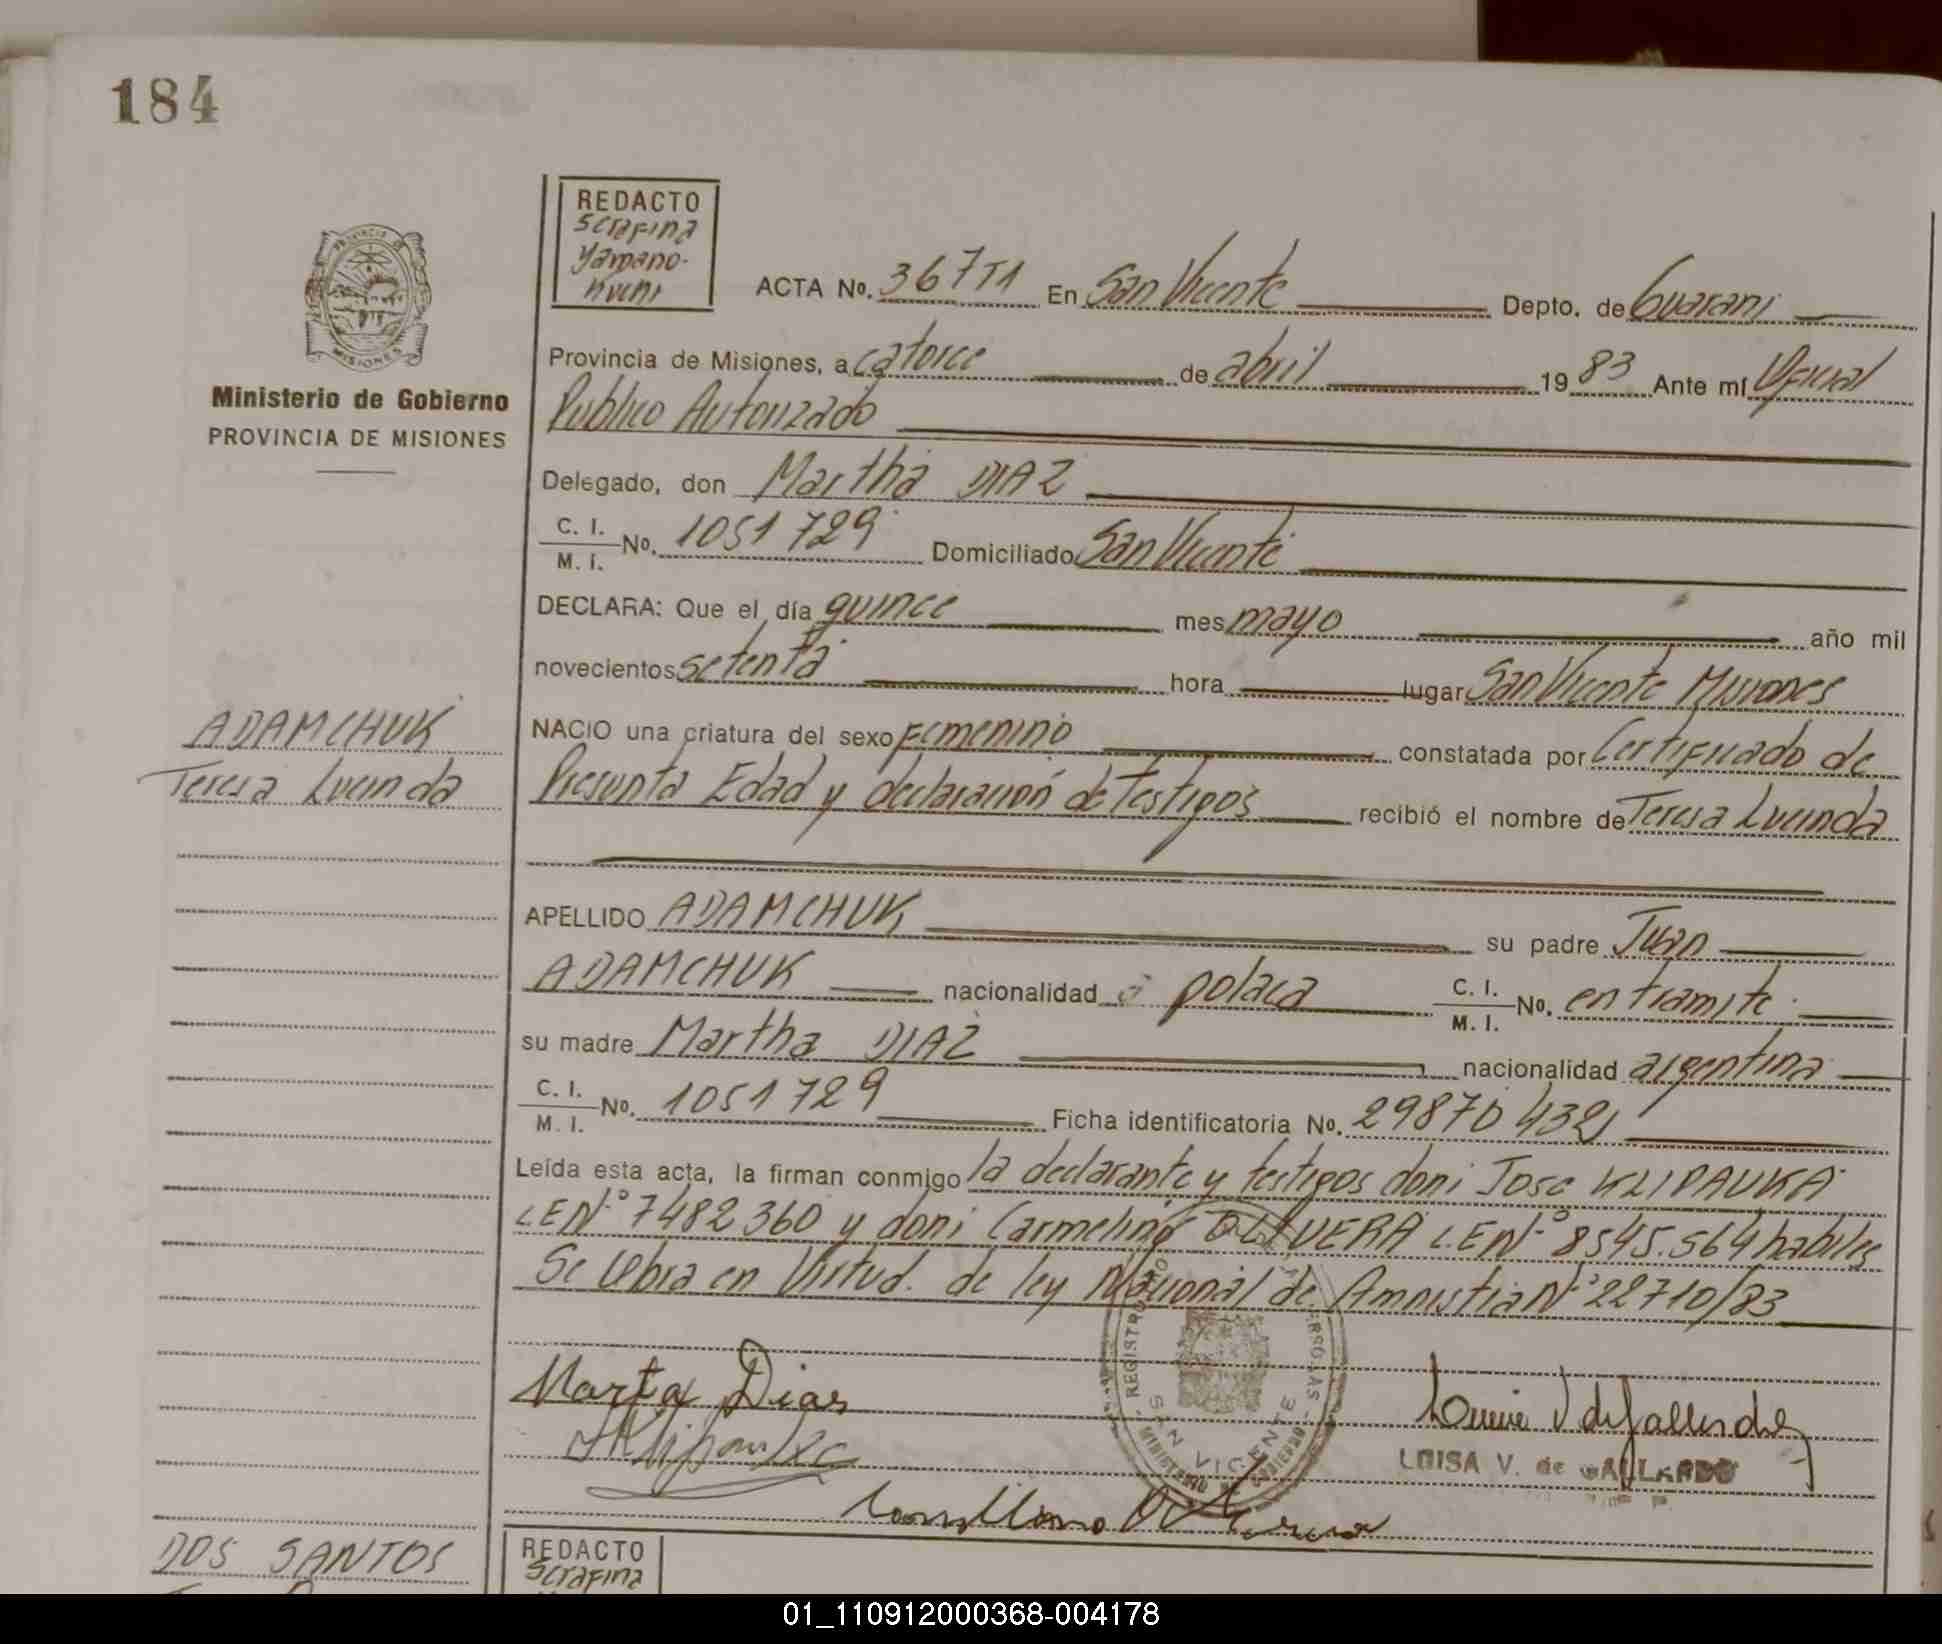 184
REDACTO
Serafina
Yamano-
PROVINCIA DE
MISIONES
Ministerio de Gobierno
PROVINCIA DE MISIONES
ACTA No. 367T1 En San Vicente Depto. de Guarani
Provincia de Misiones, a catorce de abril 1983 Ante mí Oficial
Publico Autorizado
Delegado, don Martha DIAZ
C. I. / M. I. No. 1051729 Domiciliado San Vicente
DECLARA: Que el día quince mes mayo año mil
novecientos setenta hora lugar San Vicente Misiones
ADAMCHUK
Teresa Lucinda
NACIO una criatura del sexo Femenino constatada por Certificado de
Presunta Edad y declaración de Testigos recibió el nombre de Teresa Lucinda
APELLIDO ADAMCHUK su padre Juan
ADAMCHUK nacionalidad polaca C. I. / M. I. No. en tramite
su madre Martha DIAZ nacionalidad argentina
C. I. / M. I. No. 1051729 Ficha identificatoria No. 29870432
Leída esta acta, la firman conmigo la declarante y testigos don: Jose KLIPAUKA
LE Nº 7482360 y don: Carmelino OLIVERA L.E Nº 8545.564 habiles
Se labra en Virtud. de ley Nacional de Amnistia Nº 22710/83
Marta Dias
REGISTRO
SAN VICENTE
MINISTERIO DE GOBIERNO
LUISA V. de GALLARDO
DOS SANTOS
REDACTO
Serafina
01_110912000368-004178